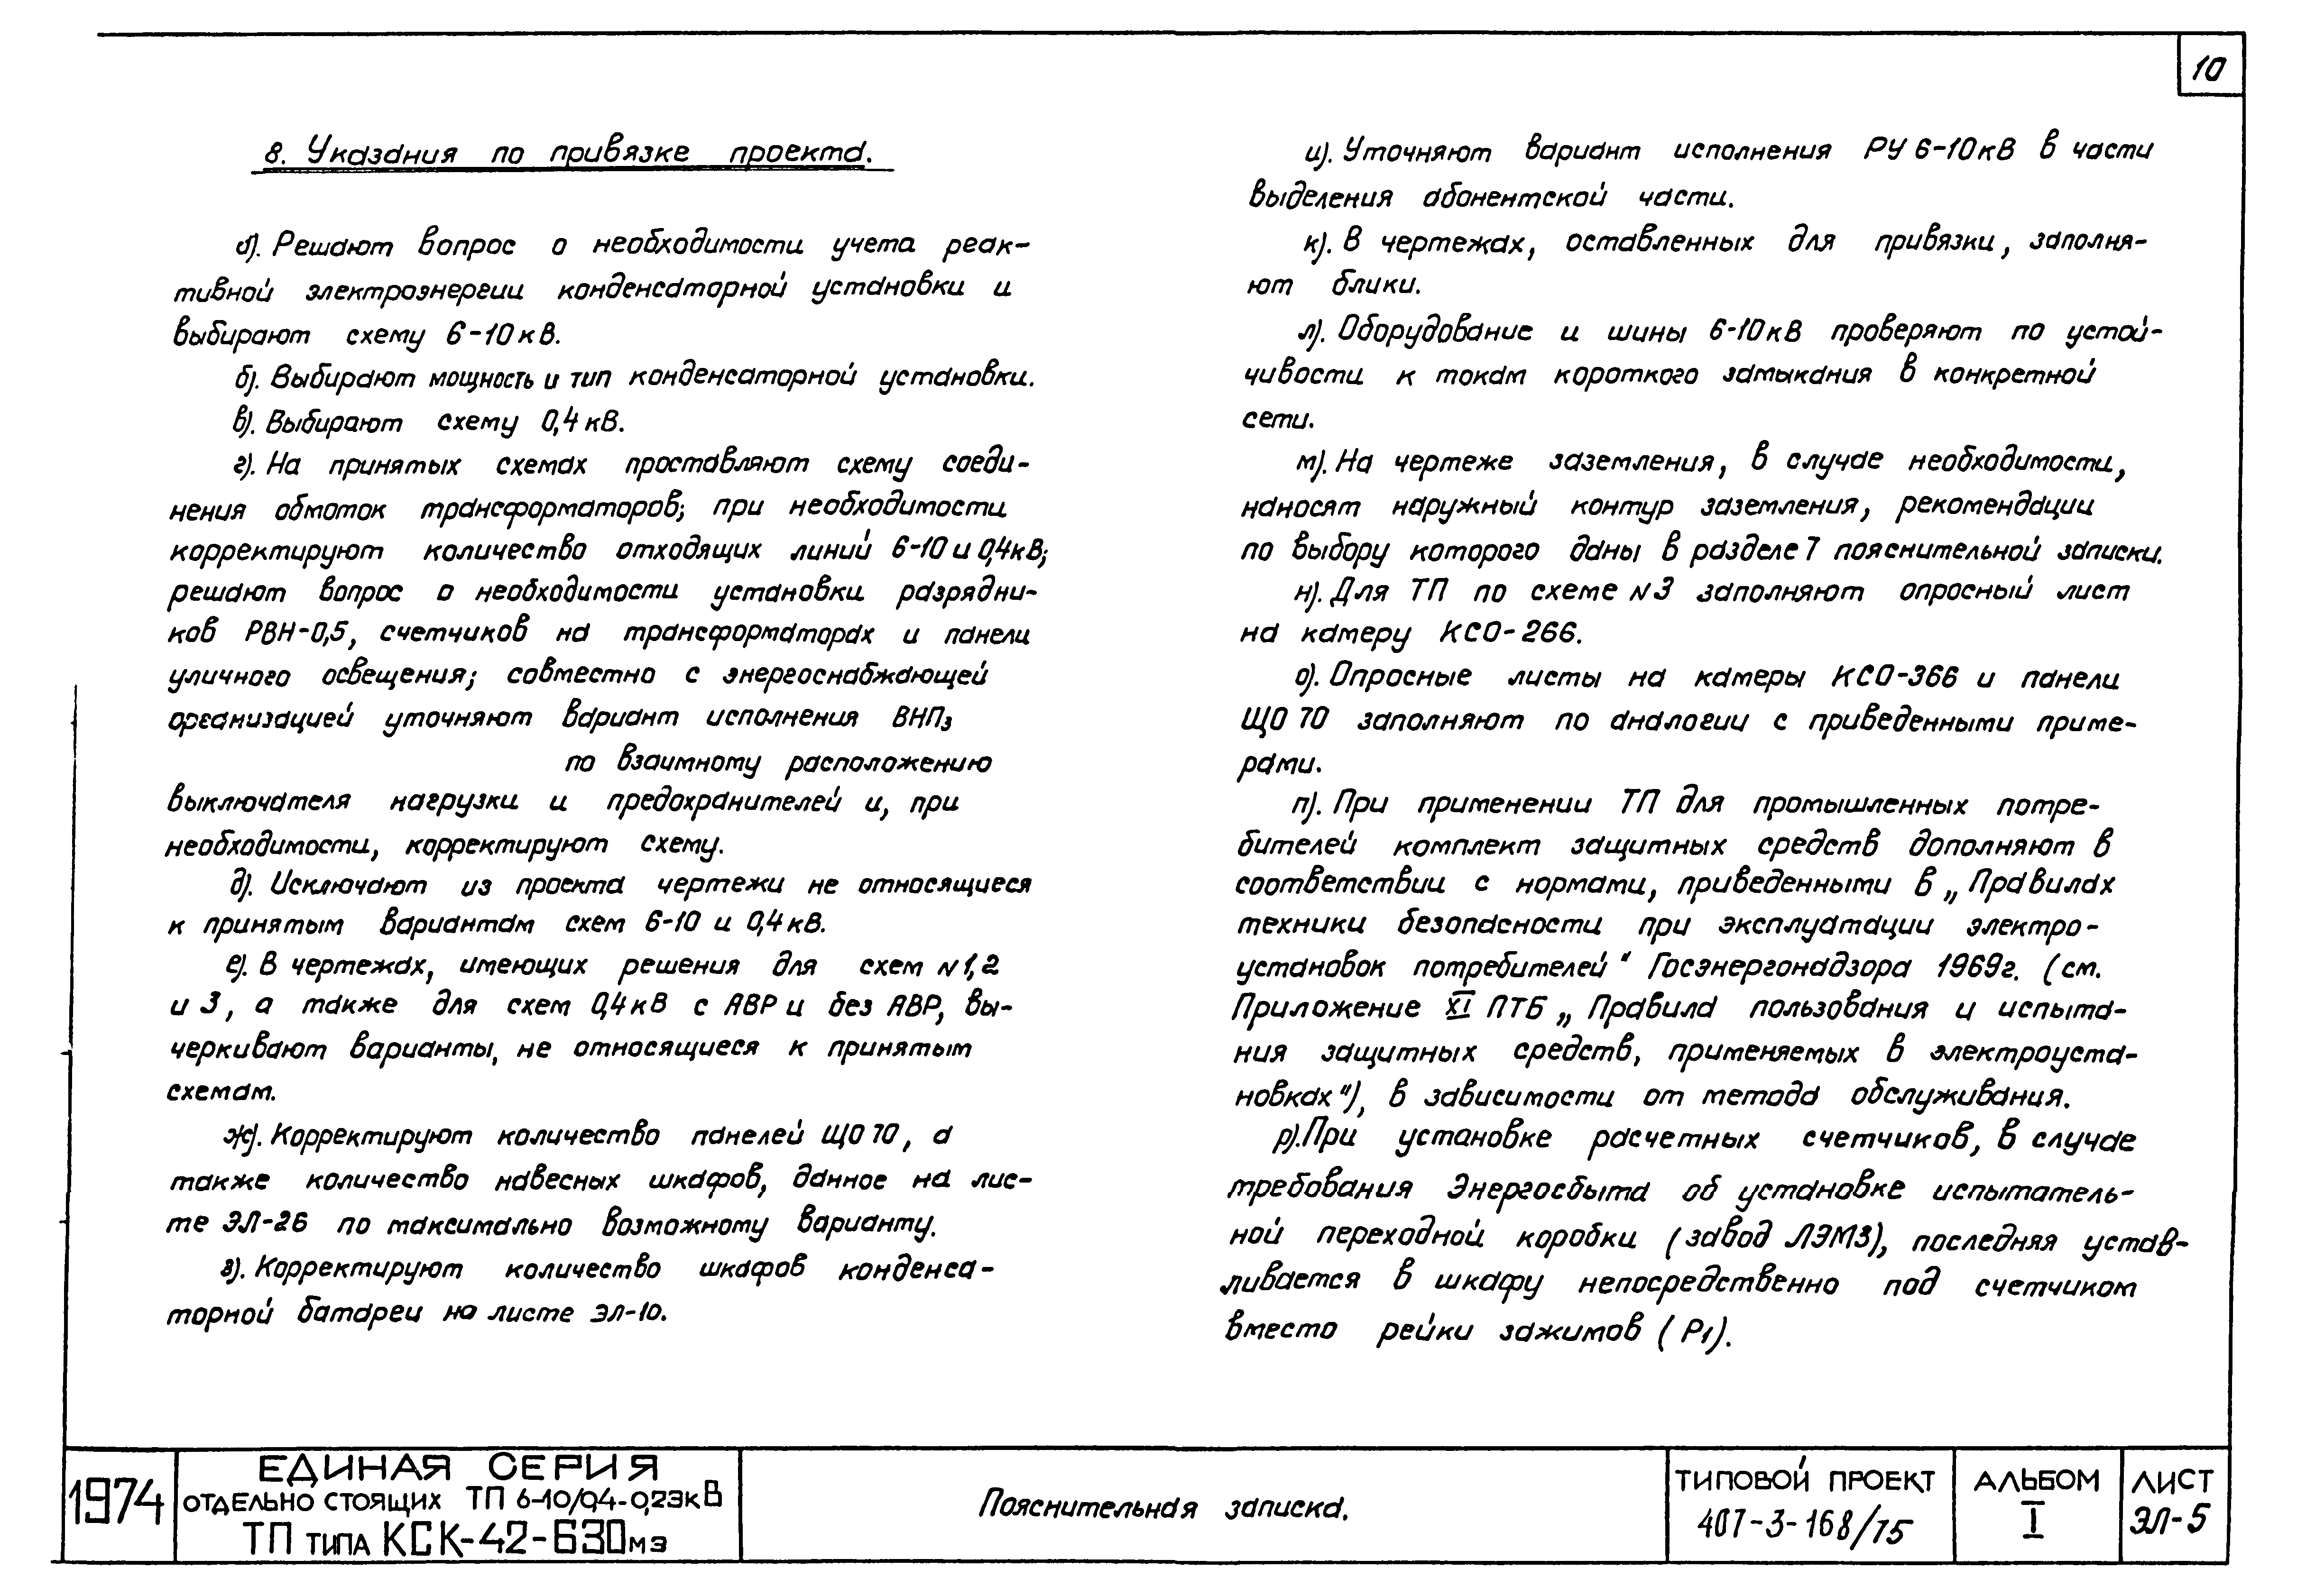 10
8. Указания по привязке проекта.
а). Решают вопрос о необходимости учета реак-
тивной электроэнергии конденсаторной установки и
выбирают схему 6-10 кВ.
б). Выбирают мощность и тип конденсаторной установки.
в). Выбирают схему 0,4 кВ.
г). На принятых схемах проставляют схему соеди-
нения обмоток трансформаторов; при необходимости
корректируют количество отходящих линий 6-10 и 0,4кВ;
решают вопрос о необходимости установки разрядни-
ков РВН-0,5, счетчиков на трансформаторах и панели
уличного освещения; совместно с энергоснабжающей
организацией уточняют вариант исполнения ВНПз
по взаимному расположению
выключателя нагрузки и предохранителей и, при
необходимости, корректируют схему.
д). Исключают из проекта чертежи не относящиеся
к принятым вариантам схем 6-10 и 0,4 кВ.
е). В чертежах, имеющих решения для схем N 1, 2
и 3, а также для схем 0,4 кВ с АВР и без АВР, вы-
черкивают варианты, не относящиеся к принятым
схемам.
ж). Корректируют количество панелей ЩО 70, а
также количество навесных шкафов, данное на лис-
те ЭЛ-26 по максимально возможному варианту.
з). Корректируют количество шкафов конденса-
торной батареи на листе ЭЛ-10.
и). Уточняют вариант исполнения РУ 6-10кВ в части
выделения абонентской части.
к). В чертежах, оставленных для привязки, заполня-
ют блики.
л). Оборудование и шины 6-10кВ проверяют по устой-
чивости к токам короткого замыкания в конкретной
сети.
м). На чертеже заземления, в случае необходимости,
наносят наружный контур заземления, рекомендации
по выбору которого даны в разделе 7 пояснительной записки.
н). Для ТП по схеме N 3 заполняют опросный лист
на камеру КСО-266.
о). Опросные листы на камеры КСО-366 и панели
ЩО 70 заполняют по аналогии с приведенными приме-
рами.
п). При применении ТП для промышленных потре-
бителей комплект защитных средств дополняют в
соответствии с нормами, приведенными в „Правилах
техники безопасности при эксплуатации электро-
установок потребителей“ Госэнергонадзора 1969г. (см.
Приложение XI ПТБ „Правила пользования и испыта-
ния защитных средств, применяемых в электроуста-
новках"), в зависимости от метода обслуживания.
р). При установке расчетных счетчиков, в случае
требования Энергосбыта об установке испытатель-
ной переходной коробки (завод ЛЭМЗ), последняя устав-
ливается в шкафу непосредственно под счетчиком
вместо рейки зажимов (Р1).
1974
ЕДИНАЯ СЕРИЯ
ОТДЕЛЬНО СТОЯЩИХ ТП 6-10/0,4-0,23кВ
ТП ТИПА КСК-42-630мэ
Пояснительная записка.
ТИПОВОЙ ПРОЕКТ
407-3-168/75
АЛЬБОМ
I
ЛИСТ
ЭЛ-5